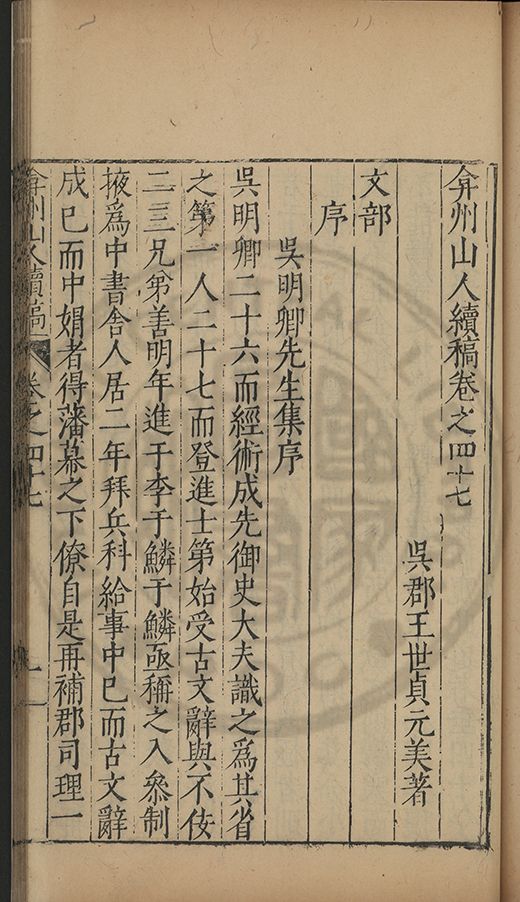 弇州山人續稿卷之四十七
吳郡王世貞元美著
文部
序
吳明卿先生集序
吳明卿二十六而經術成先御史大夫識之爲其省
之第一人二十七而登進士第始受古文辭與不佞
二三兄弟善明年進于李于鱗于鱗亟稱之入叅制
掖爲中書舍人居二年拜兵科給事中已而古文辭
成已而中娟者得藩幕之下僚自是再補郡司理一
弇州山人續稿 卷之四十七 一